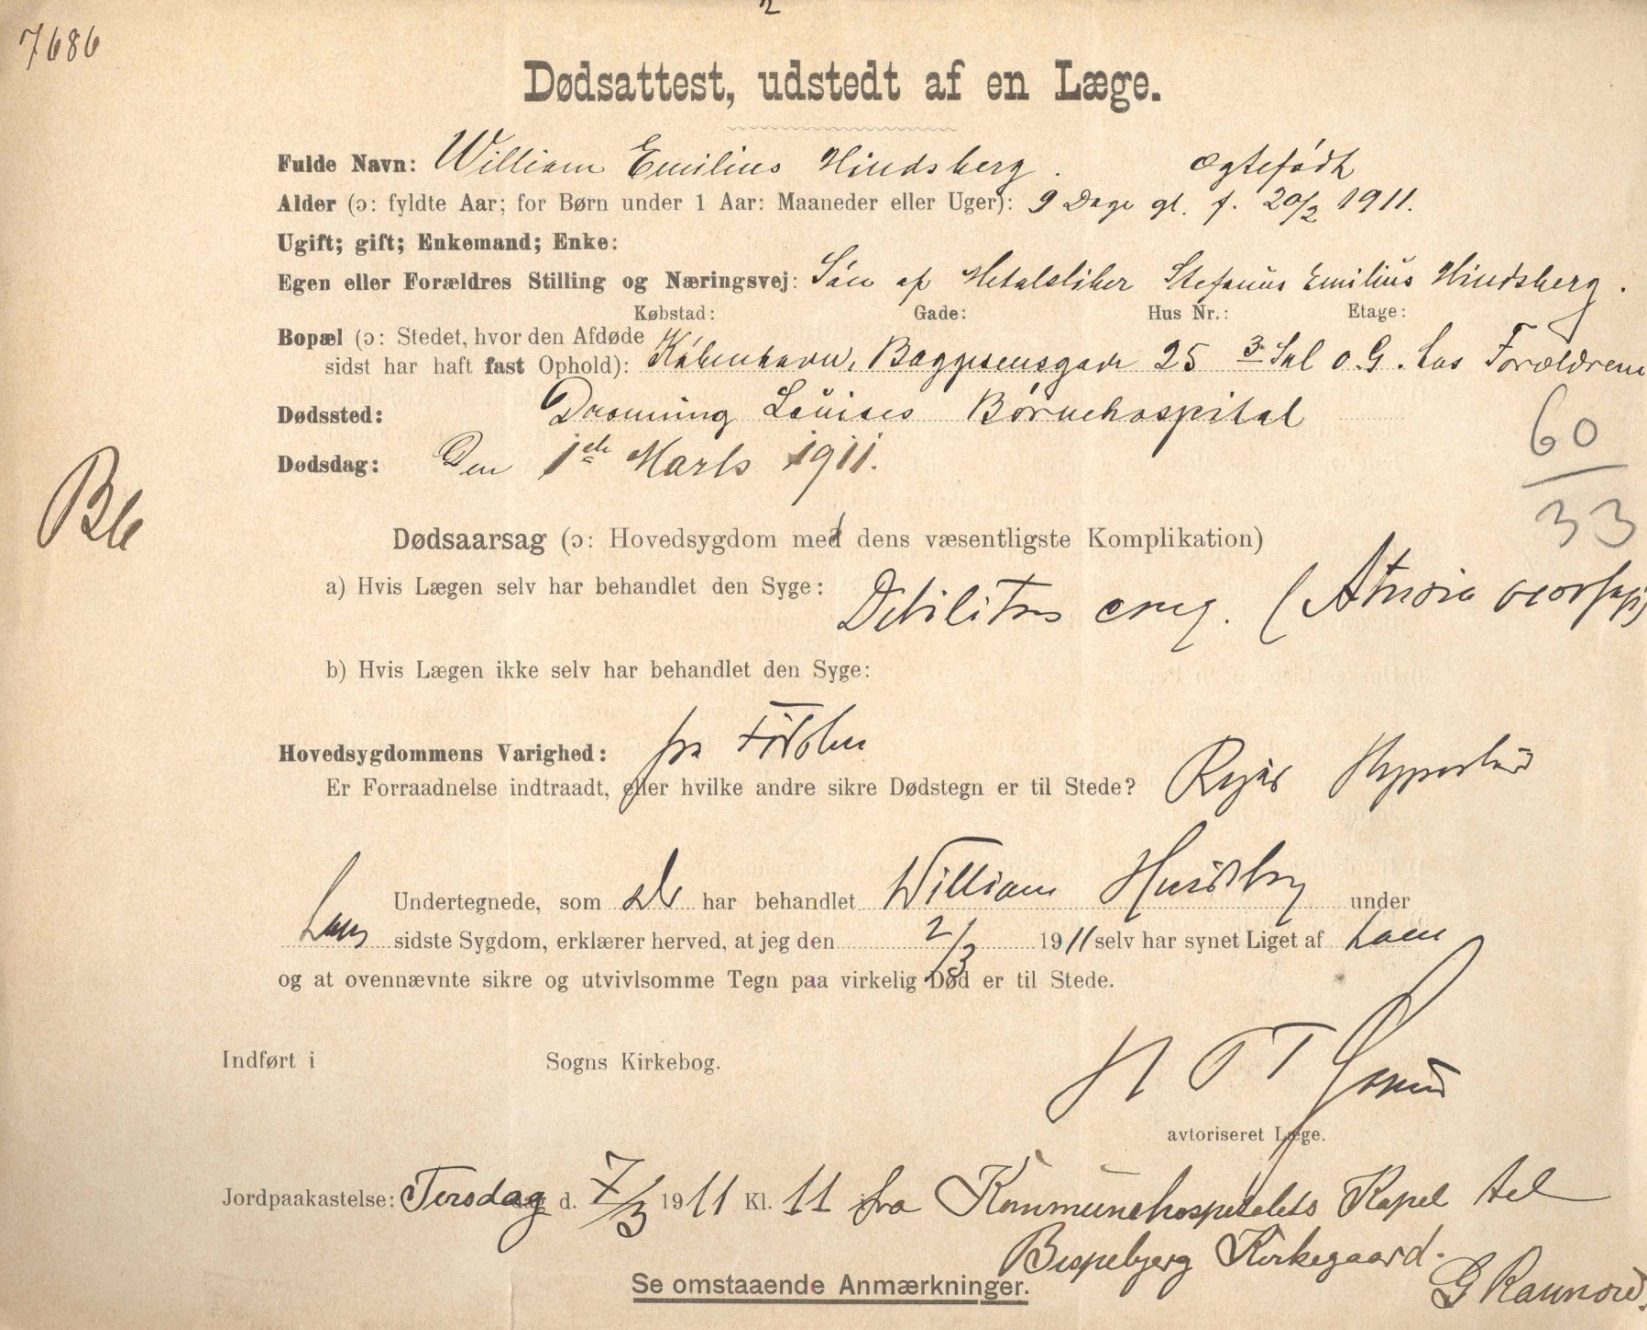 7686
Dødsattest, udstedt af en Læge.
Fulde Navn: William Emilius Hindsberg. ægtefødt
Alder (ɔ: fyldte Aar; for Børn under 1 Aar: Maaneder eller Uger): 9 Dage gl. f. 20/2 1911.
Ugift; gift; Enkemand; Enke:
Egen eller Forældres Stilling og Næringsvej: Søn af Metalsliber Stefanus Emilius Hindsberg.
Købstad: Gade: Hus Nr.: Etage:
Bopæl (ɔ: Stedet, hvor den Afdøde
sidst har haft fast Ophold): København, Baggesensgade 25 3 Sal o. G. hos Forældrene
Dødssted: Dronning Louises Børnehospital
60
Dødsdag: Den 1ste Marts 1911.
33
Dødsaarsag (ɔ: Hovedsygdom med dens væsentligste Komplikation)
a) Hvis Lægen selv har behandlet den Syge: Debilitas cong. (Atresia
b) Hvis Lægen ikke selv har behandlet den Syge:
Hovedsygdommens Varighed: fra Fødslen
Er Forraadnelse indtraadt, eller hvilke andre sikre Dødstegn er til Stede? Rigor Hypostaser
Undertegnede, som har behandlet William Hindsberg under
hans sidste Sygdom, erklærer herved, at jeg den 2/3 1911 selv har synet Liget af ham
og at ovennævnte sikre og utvivlsomme Tegn paa virkelig Død er til Stede.
Indført i Sogns Kirkebog.
avtoriseret Læge.
Jordpaakastelse: Tirsdag d. 7/3 1911 Kl. 11 fra Kommunehospitalets Kapel til
Bispebjerg Kirkegaard.
Se omstaaende Anmærkninger.